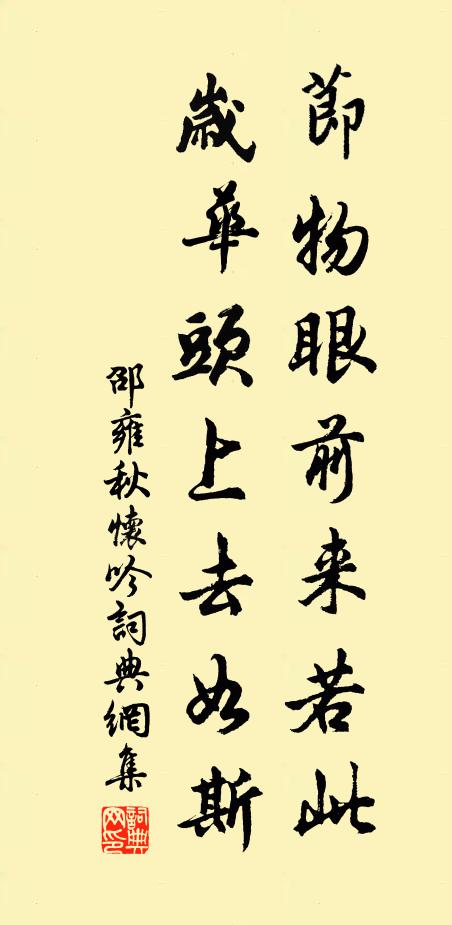 節物眼前来若此
歲華頭上去如斯
邵雍秋懷吟詞典網集
詞典网印